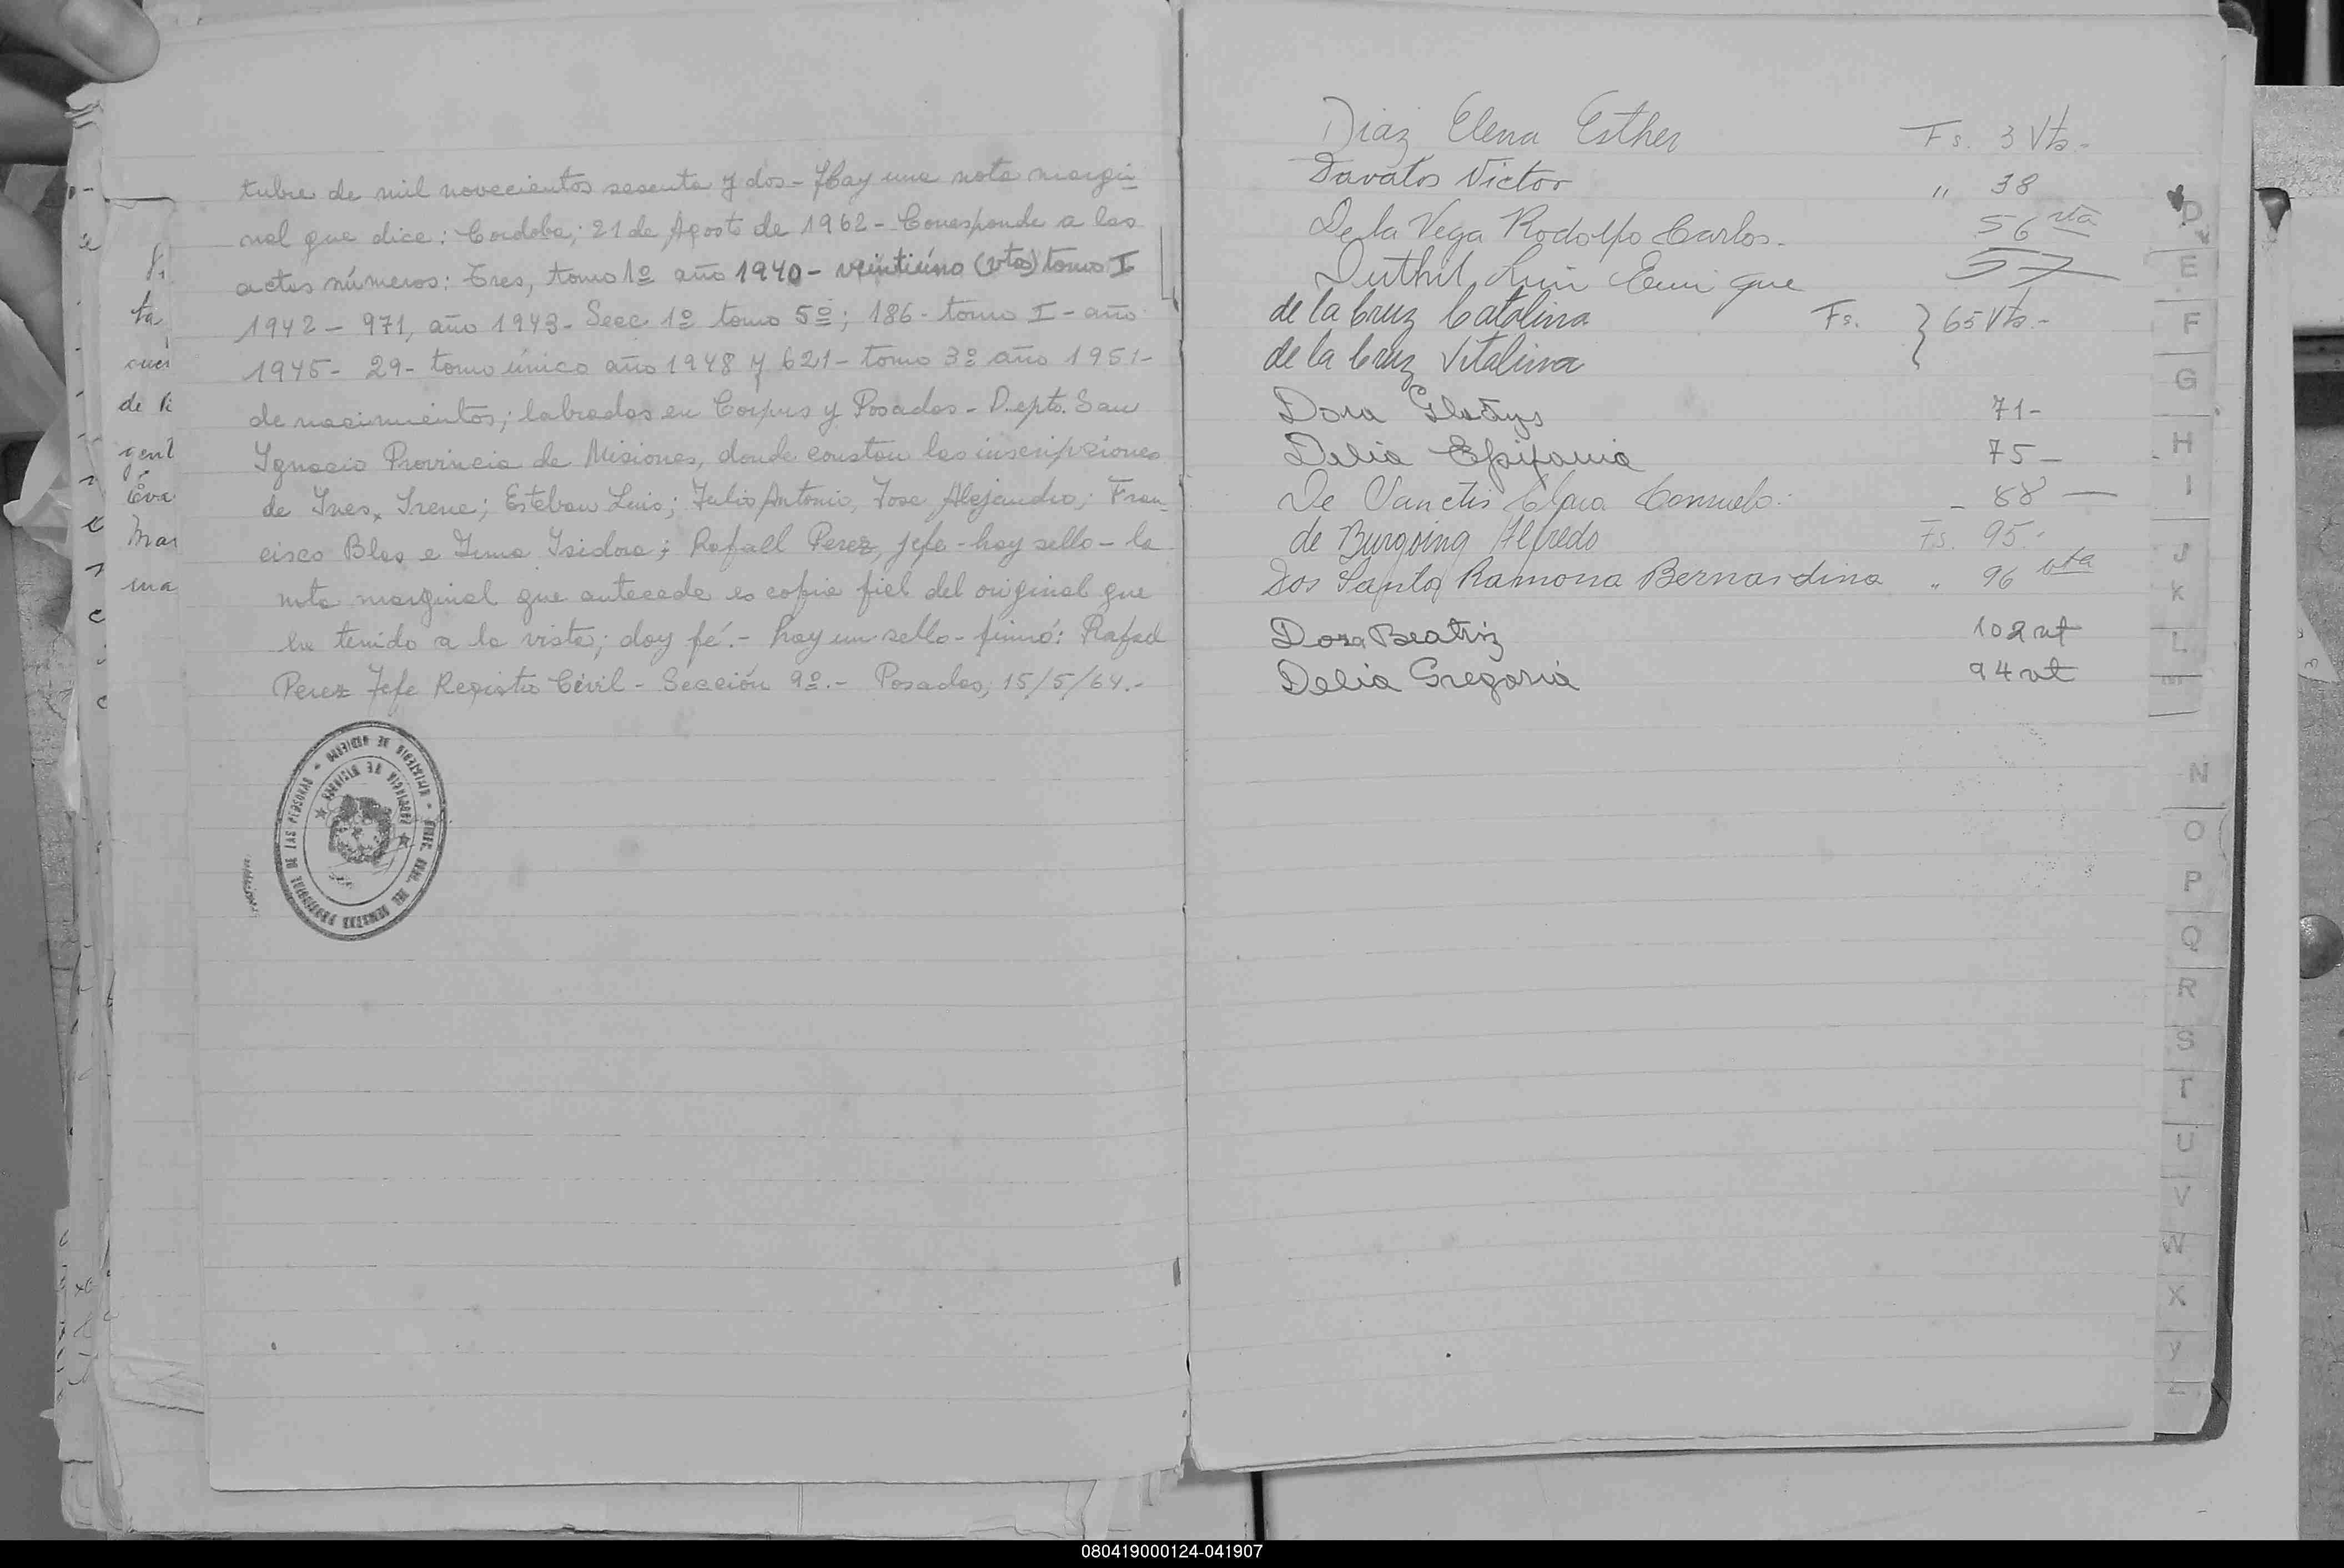 tubre de mil novecientos sesenta y dos - Hay una nota margi-
nal que dice: Cordoba; 21 de Agosto de 1962 - Corresponde a las
actas números: Tres, tomo 1º año 1940 - veintiúno (vta) tomo I
1942 - 971, año 1943 - Secc 1º tomo 5º; 186 - tomo I - año
1945 - 29 - tomo único año 1948 y 621 - tomo 3º año 1951 -
de nacimientos; labradas en Corpus y Posadas - Depto. San
Ignacio Provincia de Misiones, donde constan las inscripciones
de Ines, Irene; Esteban Luis; Julio Antonio, Jose Alejandro; Fran-
cisco Blas e Irma Isidora; Rafael Perez, jefe - hay sello - la
nota marginal que antecede es copia fiel del original que
he tenido a la vista; doy fé. - hay un sello - firmó: Rafael
Perez Jefe Registro Civil - Sección 9º. - Posadas, 15/5/64. -
ta
de
gent
Eva
Mar
ma
Diaz Elena Esther Fs. 3 Vta -
Davalos Victor " 38
De la Vega Rodolfo Carlos - 56 vta
Duthil Luis Enrique 57
de la Cruz Catalina Fs. } 65 Vta. -
de la Cruz Vitalina
Dora Gladys 71 -
Delia Epifania 75 -
De Sanctis Clara Consuelo - 88 —
de Burgoing Alfredo Fs. 95 -
Dos Santos Ramona Bernardina " 96 vta
Dora Beatriz 102 vt
Delia Gregoria 94 vt
D
E
F
G
H
I
J
K
L
M
N
O
P
Q
R
S
T
U
V
W
X
Y
Z
080419000124-041907